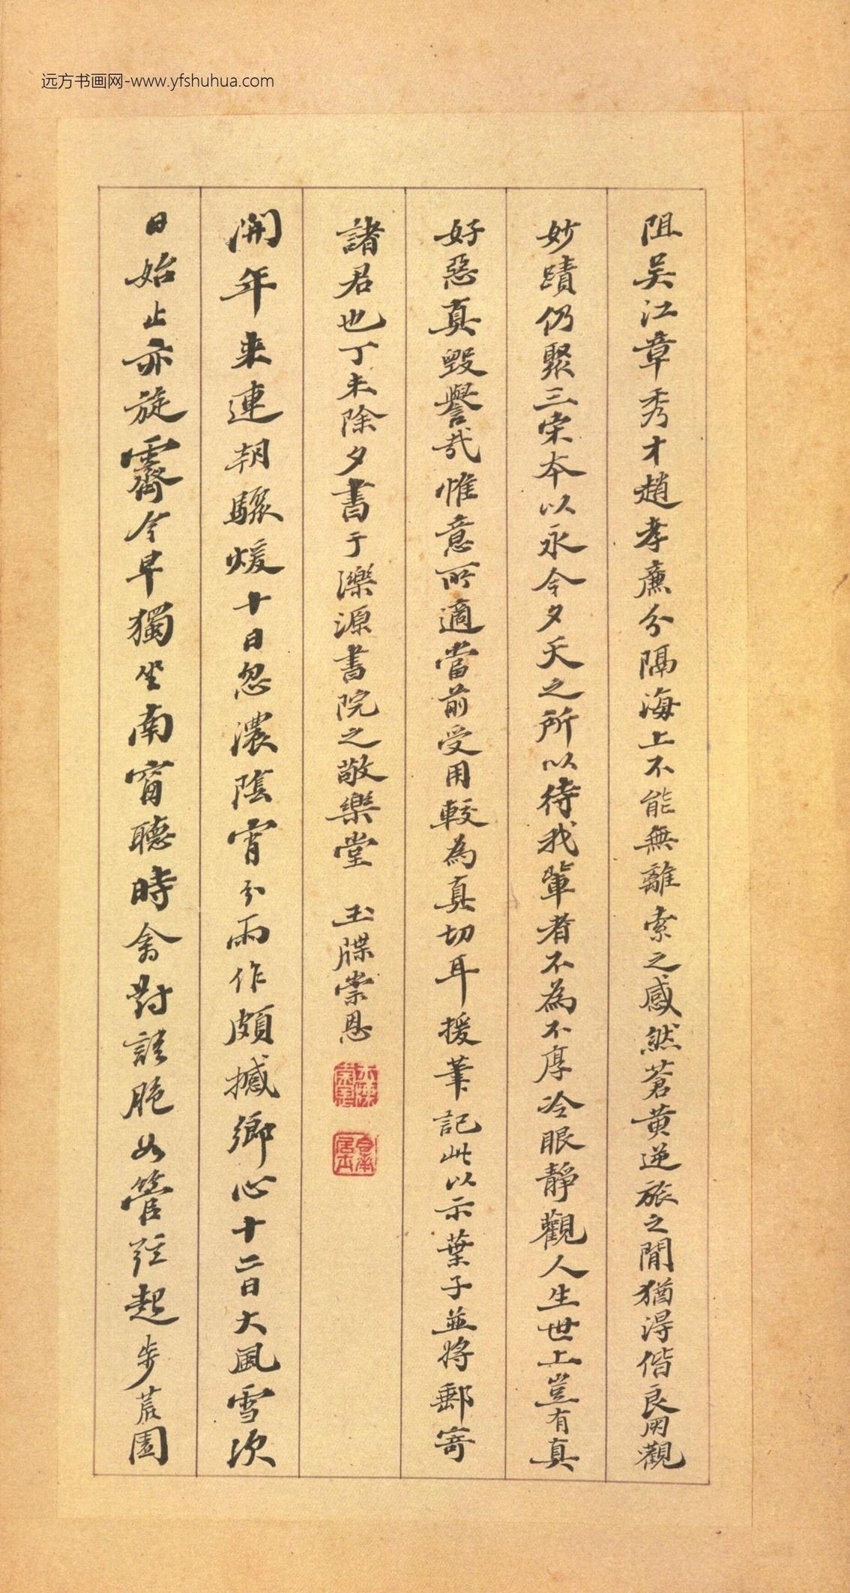 远方书画网-www.yfshuhua.com
阻吴江章秀才趙孝廉分隔海上不能無離索之感然蒼黄逆旅之間猶得偕良朋觀
妙蹟仍聚三宋本以永今夕天之所以待我輩者不為不厚冷眼靜觀人生世上豈有真
好惡真毀譽哉惟意所適當前受用較為真切耳援筆記此以示葉子並將郵寄
諸君也丁未除夕書于濼源書院之敬樂堂 玉牒崇恩
開年來連朝驟煖十日忽濃陰宵分雨作頗撼鄉心十二日大風雪次
日始止亦旋霽今早獨坐南窗聽時禽對語脆如管弦起步荒園